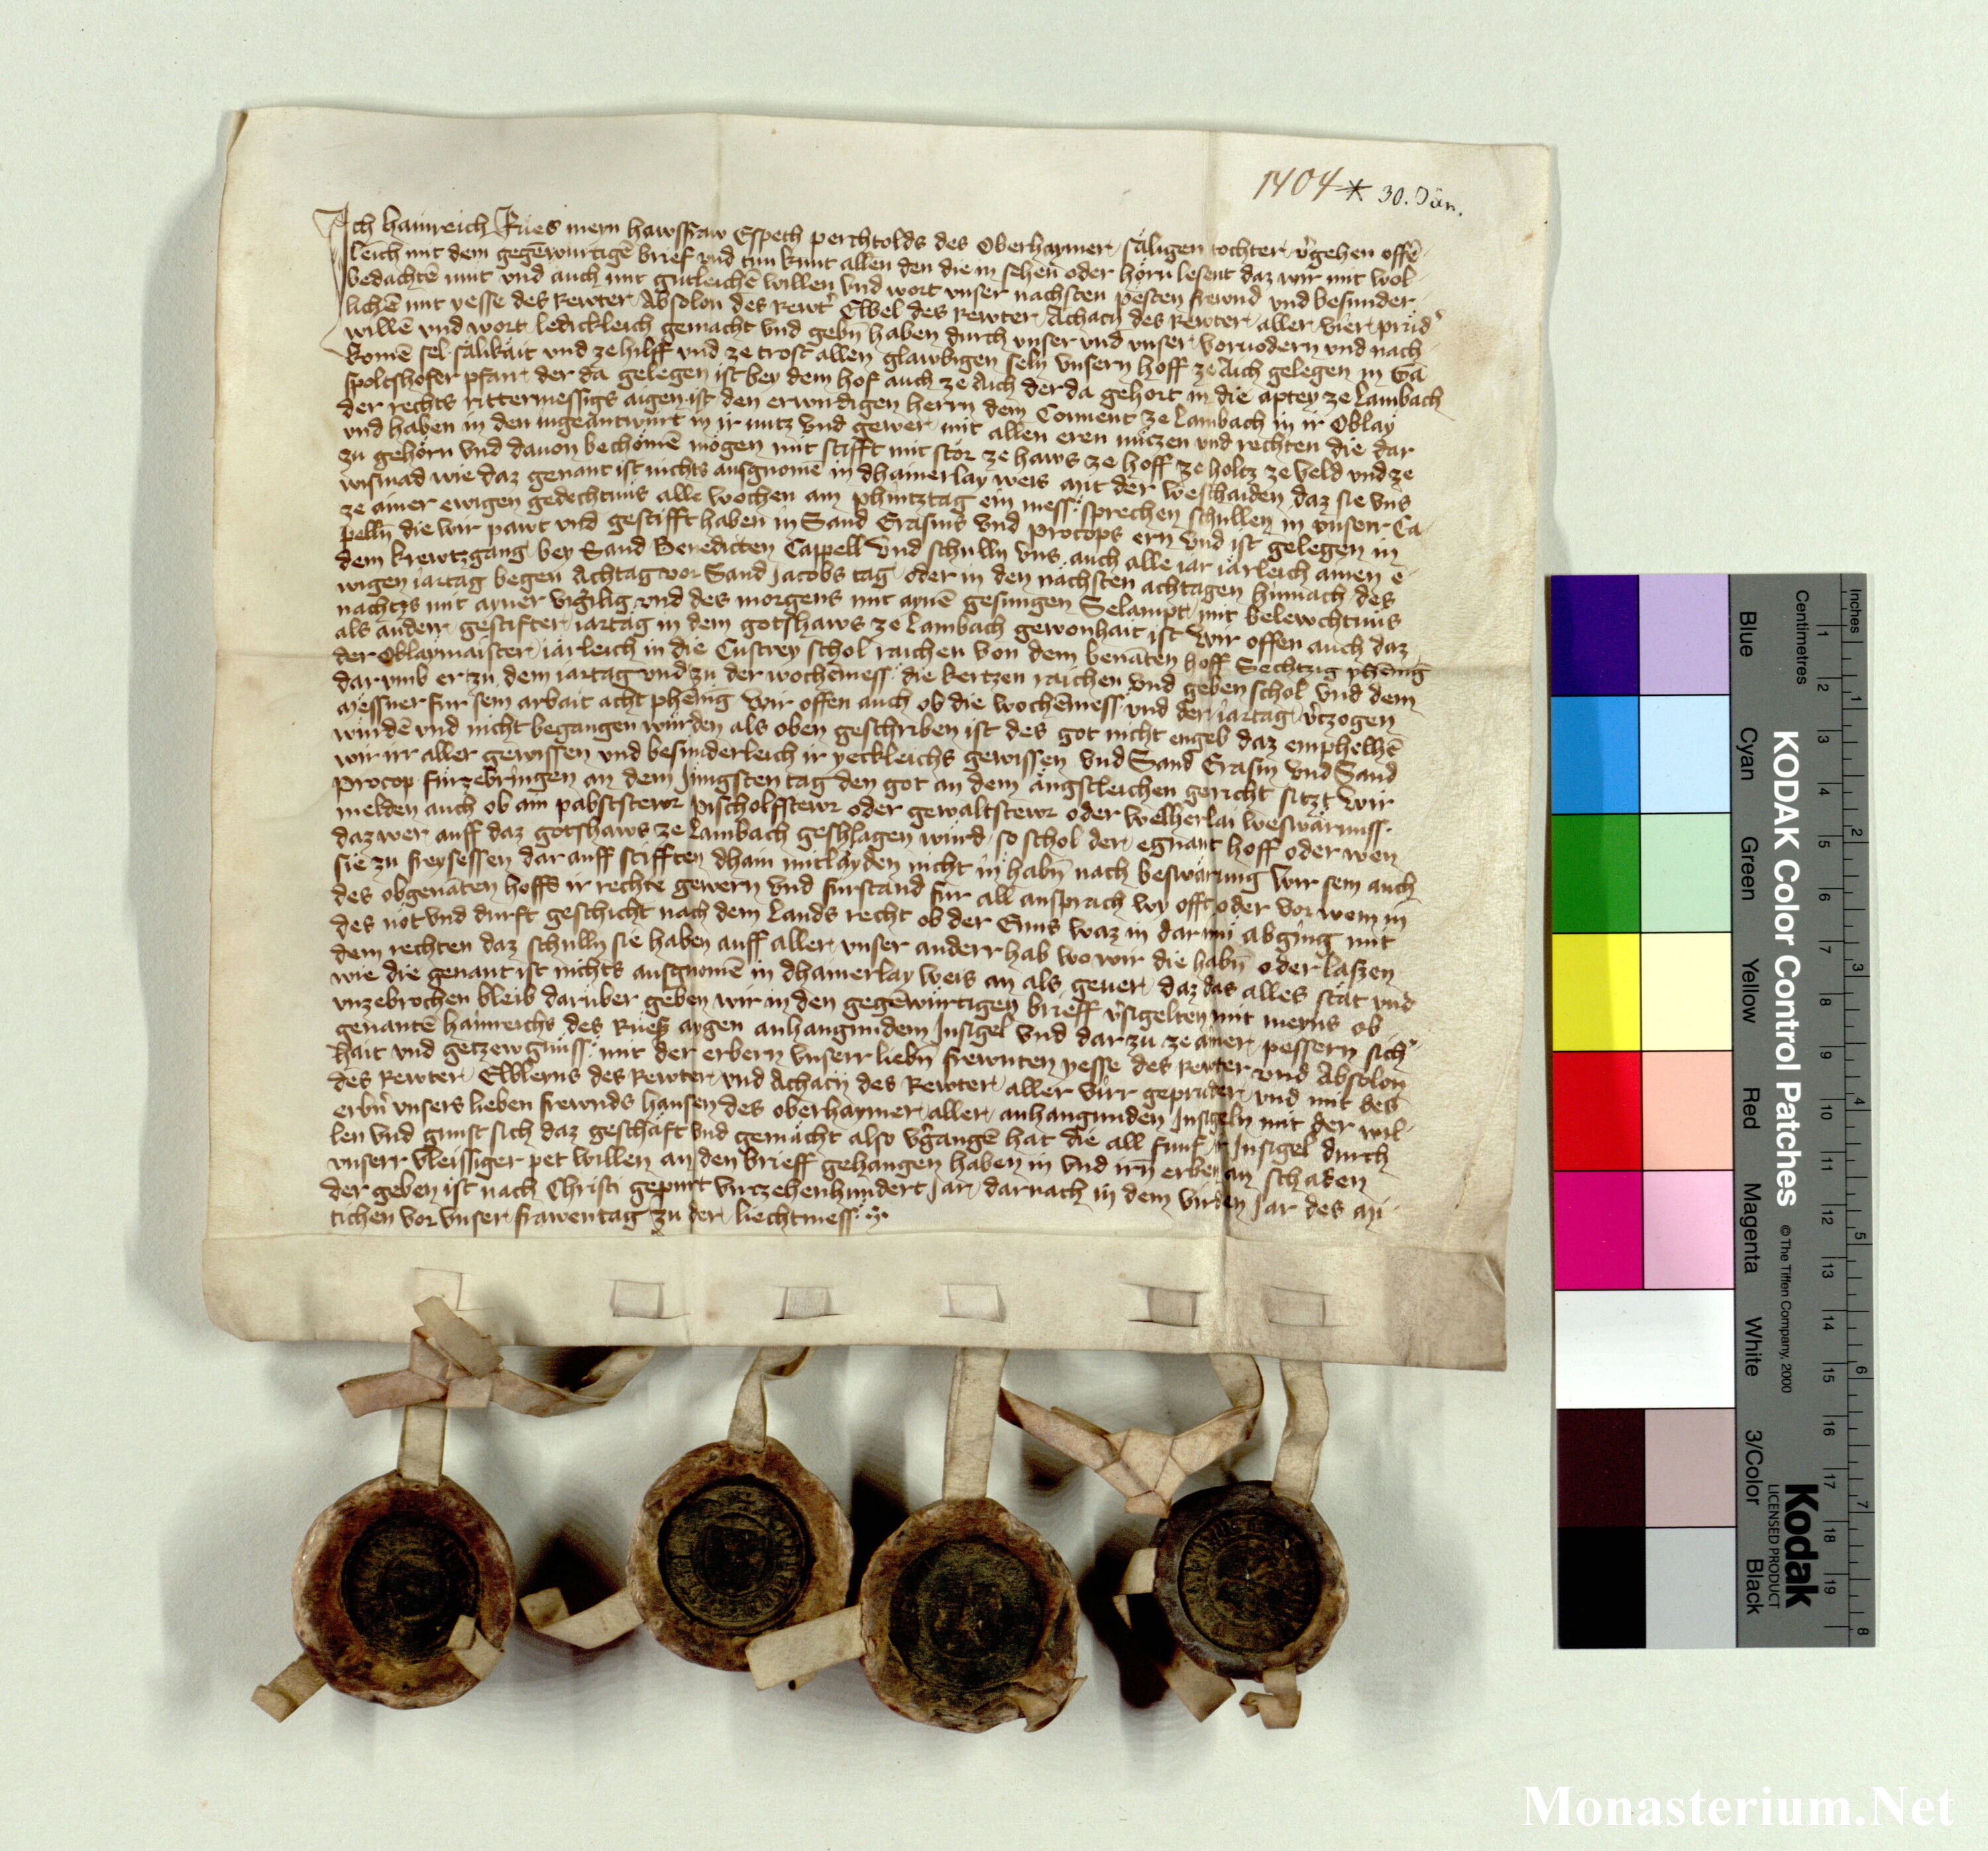 1404 * 30. Jän.
Ich hainreich Rues mein hawsfraw Elspeth perchtolds des Oberhaymer säligen tochter v̓gehen offē
leich mit dem gegēwurtigē brief vnd tun kunt allen den die in sehen oder hörn lesent daz wir mit wol
bedachtē mut vnd auch mit gutleichē willen vnd wort vnser nachsten pesten frewnd vnd besunder
lichē mit yesse des Rewter Absolon des Rewt̓ Elbel des Rewter Achacy des Rewter aller vier prüd̓
willē vnd wort ledickleich gemacht vnd gebn̄ haben durch vnser vnd vnser voruodern vnd nach
komē sel sälikait vnd ze hilff vnd ze trost allen glawbigen seln vnsern hoff ze Aich gelegen in Gā
spoltshofer pfarr der da gelegen ist bey dem hof auch ze Aich der da gehort in die aptey ze lambach
der rechts rittermessigs aigen ist den erwirdigen herrn dem Conuent ze lambach in ir Oblay
vnd haben in den ingeantwurt in ir nutz vnd gewer mit allen eren nützen vnd rechten die dar
zu gehörn vnd dauon bechömē mögen mit stifft mit stör ze haws ze hoff ze holtz ze veld vnd ze
wismad wie daz genant ist nichts ausgnomē in dhainerlay weis Mit der weschaiden daz sie vns
ze ainer ewigen gedechtnüs alle wochen am phintztag ein mess sprechen schullen in vnserr Ca
pelln̄ die wir pawt vnd gestifft haben in Sand Erasms vnd procops ern vnd ist gelegen in
dem krewtzgang bey Sand Benedicten Cappell vnd schulln vns auch alle iar iärleich ainen e
wigen iartag begen Achtag vor Sand Jacobs tag oder in den nächsten achtagen hinnach des
nachtzs mit ayner vigilig vnd des morgens mit aynē gesungen Selampt mit belewchtnüs
als ander gestifter iartäg in dem gotshaws ze lambach gewonhait ist Wir offen auch daz
der Oblaymaister iärleich in die Custrey schol raichen von dem benāten hoff Sechtzig phēnig
darvmb er zu dem iartag vnd zu der wochēmess die kertzen raichen vnd geben schol vnd dem
Messner für sein arbait acht phēnig Wir offen auch ob die wochēmess vnd der iartag v̓tzogen
würdē vnd nicht begangen würden als oben geschriben ist des got nicht engeb daz emphelhē
wir irr aller gewissen vnd besunderleich ir yeckleichs gewissen vnd Sand Erasm vnd Sand
Procop fürzebringen an dem Jungsten tag den got an dem ängstleichen gericht sitzt Wir
melden auch ob ain pabststewr pischolfstewr oder gewaltstewr oder welherlai weswärnuss
daz wer auff daz gotshaws ze Lambach geschlagen würd so schol der egnant hoff oder wen
sie zu freysessen dar auff stifften dhain mitlayden nicht in habn̄ nach beswärung Wir sein auch
des obgenāten hoffs ir rechte gewern vnd fürstand für all ansprach wy offt oder vor wem in
des not vnd durft geschicht nach dem Lands recht ob der Enns waz in dar inn abging mit
dem rechten daz schulln sie haben auff aller vnser anderr hab wo wir die habn̄ oder lassen
wie die genant ist nichts ausgnomē in dhainerlay weis an als geuer daz das alles stät vnd
vnzebrochen bleib darüber geben wir in den gegēwürtigen brieff v̓sigelten mit meyns ob
genantē hainreichs des Rues aygen anhangundem Insigel vnd dar zu ze ainer pessern sich̓
hait vnd getzewgnüss mit der erbern vnserr liebn̄ frewnten yesse des Rewter vnd Absolon
des Rewter Elbleyns des Rewter vnd Achacy des Rewter aller virr geprüder vnd mit des
erbn̓ vnsers lieben frewnds hansen des oberhaymer aller anhangunden Insigeln mit der wil
len vnd gunst sich daz geschäft vnd gemächt also v̓gangē hat die all fünf ir Insigel durch
vnserr vleissiger pet willen an den brieff gehangen haben in vnd irn̄ erben an schaden
der geben ist nach Christi gepurt virczehenhundert Jar darnach in dem virden Jar des Mi
tichen vor vnser frawentag zu der liechtmess
KODAK Color Control Patches
© The Tiffen Company, 2000
Kodak
LICENSED PRODUCT
Blue Cyan Green Yellow Red Magenta White 3/Color Black
Centimetres 1 2 3 4 5 6 7 8 9 10 11 12 13 14 15 16 17 18 19
Inches 1 2 3 4 5 6 7 8
Monasterium.Net